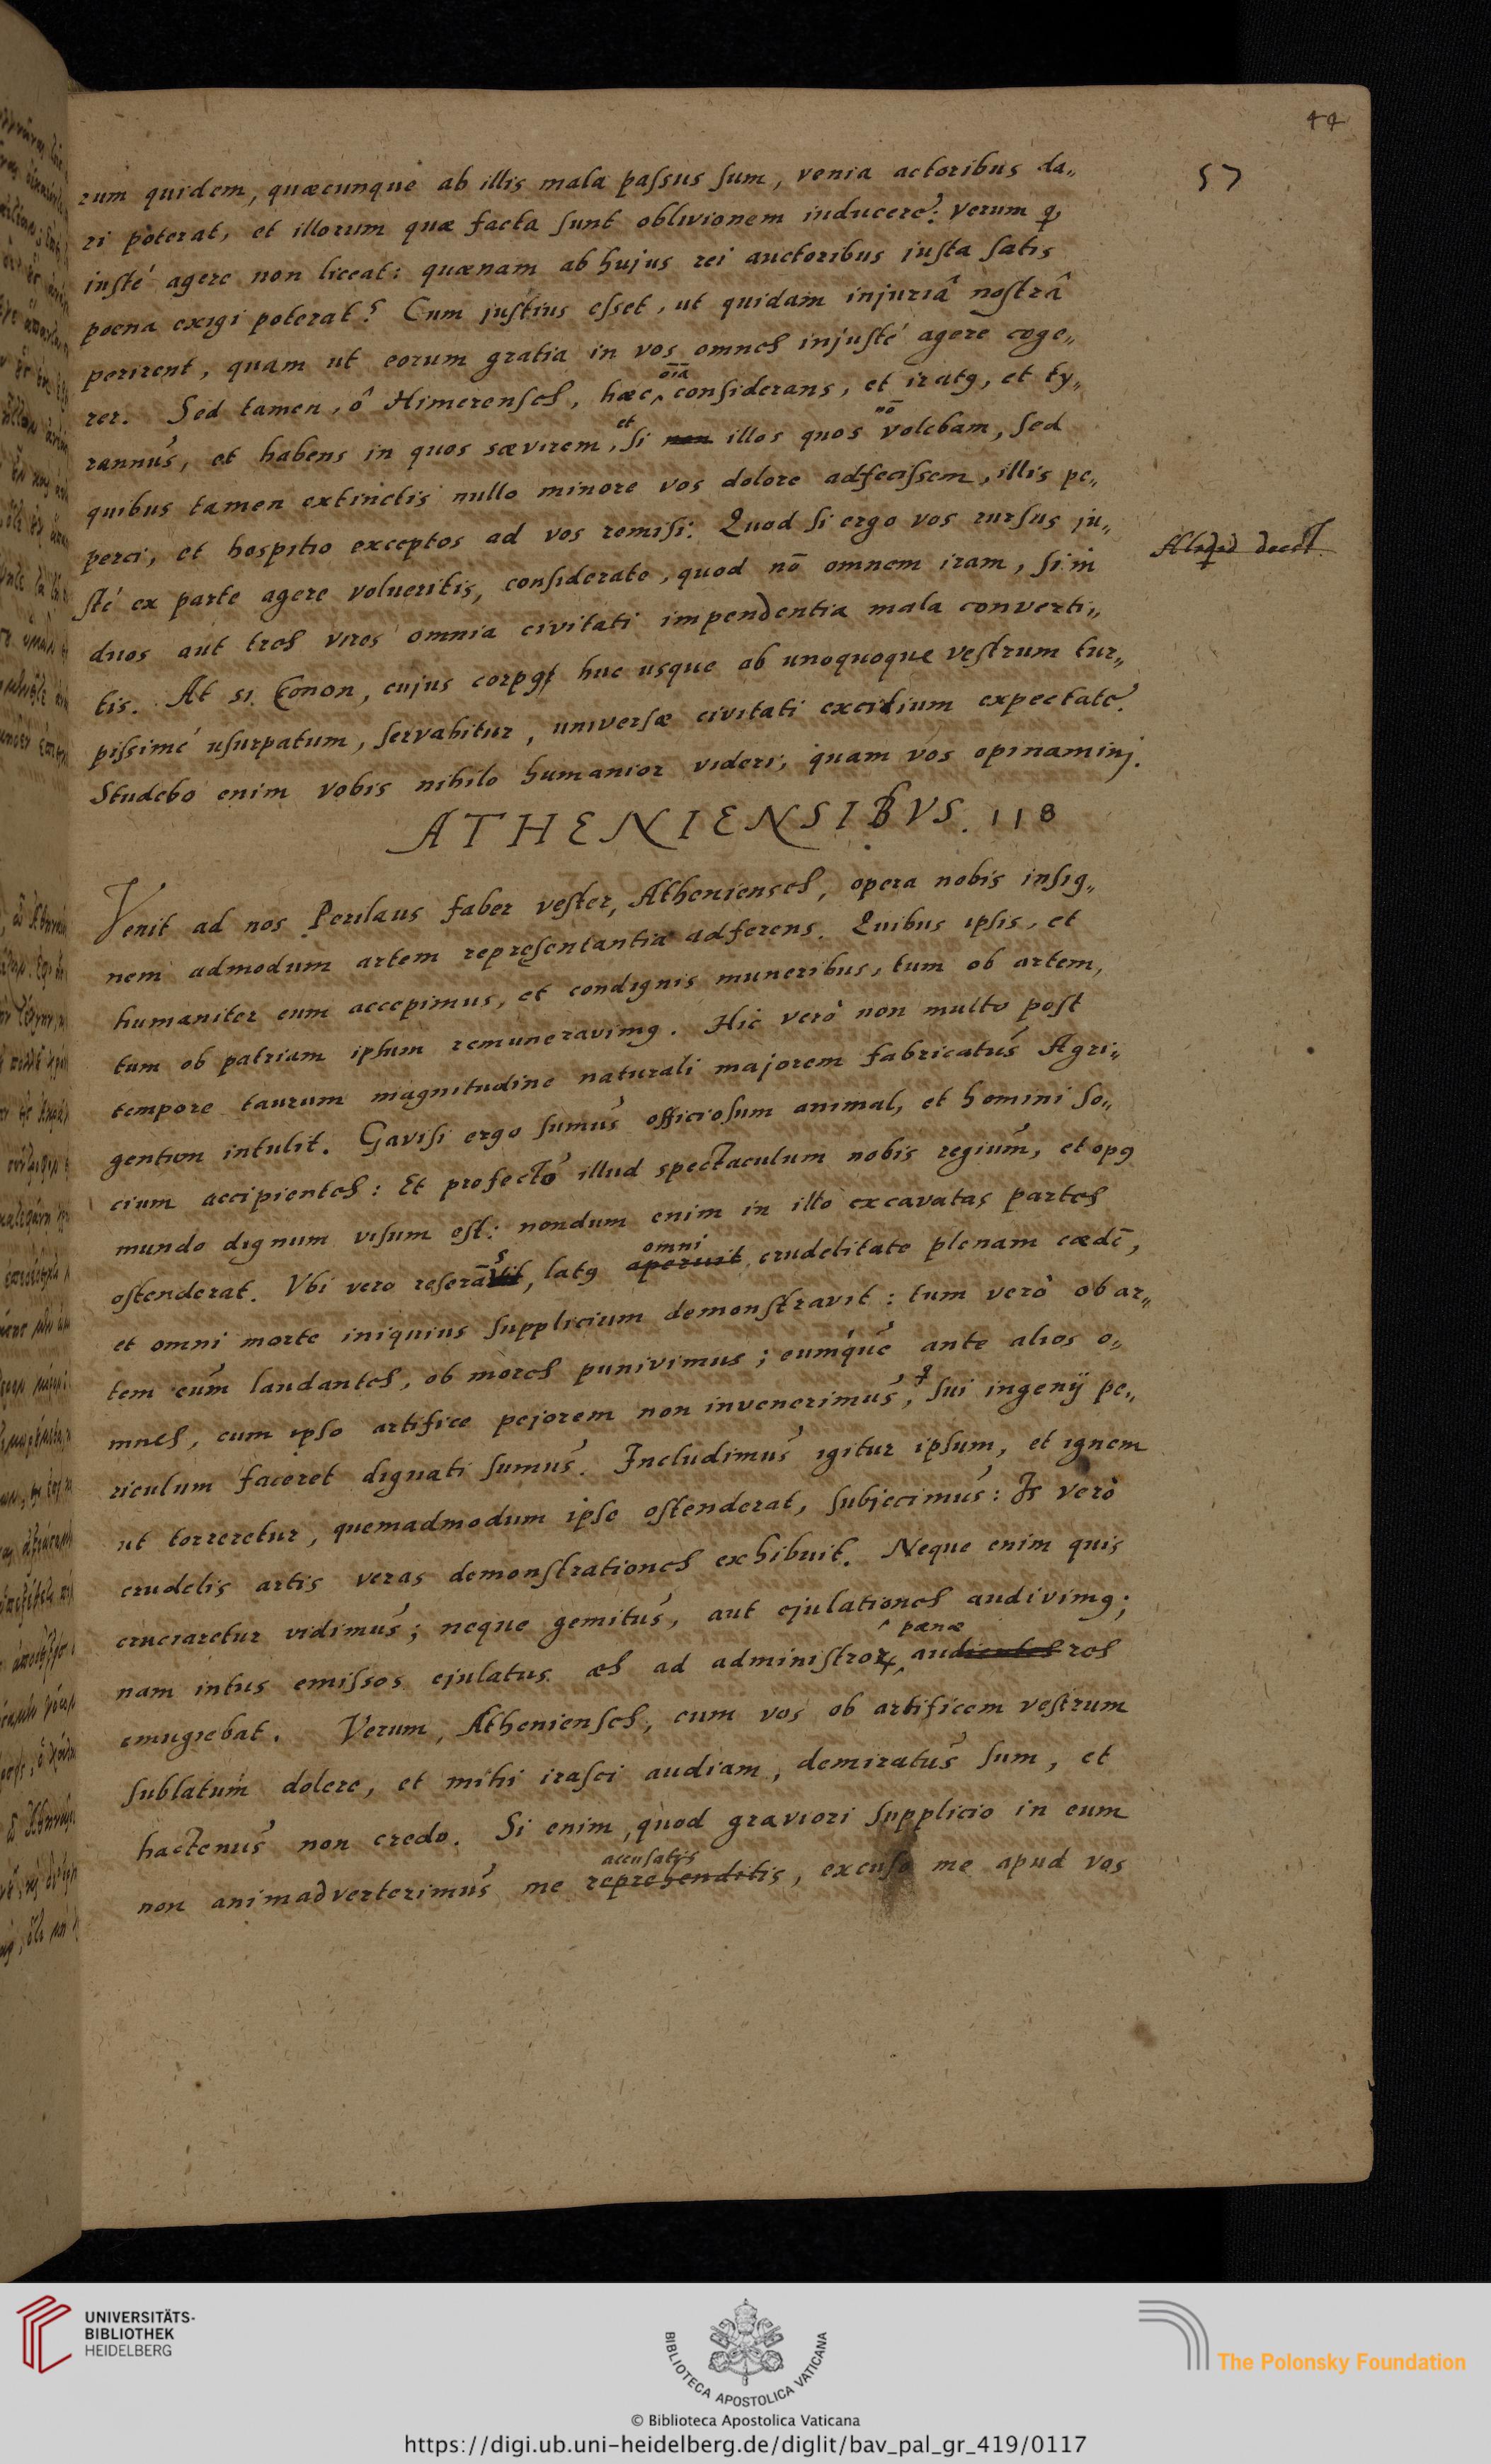 44
57
rum quidem, quæcunque ab illis mala passus sum, venia actoribus da„
ri poterat, et illorum quæ facta sunt oblivionem inducere: Verum q,
iusté agere non liceat: quænam ab hujus rei auctoribus justa satis
poena exigi poterat? Cum justius esset, ut quidam injuriâ nostrâ
perirent, quam ut eorum gratia in vos omnes injusté agere coge„
rer. Sed tamen, ô Himerenses, hæc ^ oīa considerans, et iratꝯ, et ty„
rannus, et habens in quos sævirem, et si non illos quos nō volebam, sed
quibus tamen extinctis nullo minore vos dolore adfecissem, illis pe„
perci, et hospitio exceptos ad vos remisi: Quod si ergo vos rursus ju„
sté ex parte agere volueritis, considerate, quod nō omnem iram, si in
duos aut tres viros omnia civitati impendentia mala converti„
tis. At si Conon, cujus corpꝯ huc usque ab unoquoque vestrum tur„
pissimé usurpatum, servabitur, universæ civitati excidium expectate.
Studebo enim vobis nihilo humanior videri, quam vos opinaminj.
ATHENIENSIBVS. 118
Venit ad nos Perilaus faber vester, Athenienses, opera nobis insig„
nem admodum artem repręsentantia adferens. Quibus ipsis, et
humaniter eum accepimus, et condignis muneribus, tum ob artem,
tum ob patriam ipsum remuneravimꝯ. Hic verò non multo post
tempore taurum magnitudine naturali majorem fabricatus Agri„
gentum intulit. Gavisi ergo sumus officiosum animal, et homini so„
cium accipientes: Et profectò illud spectaculum nobis regium, et opꝯ
mundo dignum visum est: nondum enim in illo excavatas partes
ostenderat. Vbi vero reserās, latꝯ aperuit omni crudelitate plenam cædē,
et omni morte iniquius supplicium demonstravit: tum verò ob ar„
tem eum laudantes, ob mores punivimus; eumque ante alios o„
mnes, cum ipso artifice pejorem non invenerimus, q sui ingenij pe„
riculum faceret dignati sumus. Includimus igitur ipsum, et ignem
ut torreretur, quemadmodum ipse ostenderat, subjecimus: Is verò
crudelis artis veras demonstrationes exhibuit. Neque enim quis
cruciaretur vidimus; neque gemitus, aut ejulationes audivimꝯ;
nam intus emissos ejulatus æs ad administroꝝ ^ pænæ audientes res
emugiebat. Verum, Athenienses, cum vos ob artificem vestrum
sublatum dolere, et mihi irasci audiam, demiratus sum, et
hactenus non credo. Si enim, quod graviori supplicio in eum
non animadverterimus me reprehenditis accusatis, excuso me apud vos
UNIVERSITÄTS-
BIBLIOTHEK
HEIDELBERG
BIBLIOTECA APOSTOLICA VATICANA
The Polonsky Foundation
© Biblioteca Apostolica Vaticana
https://digi.ub.uni-heidelberg.de/diglit/bav_pal_gr_419/0117